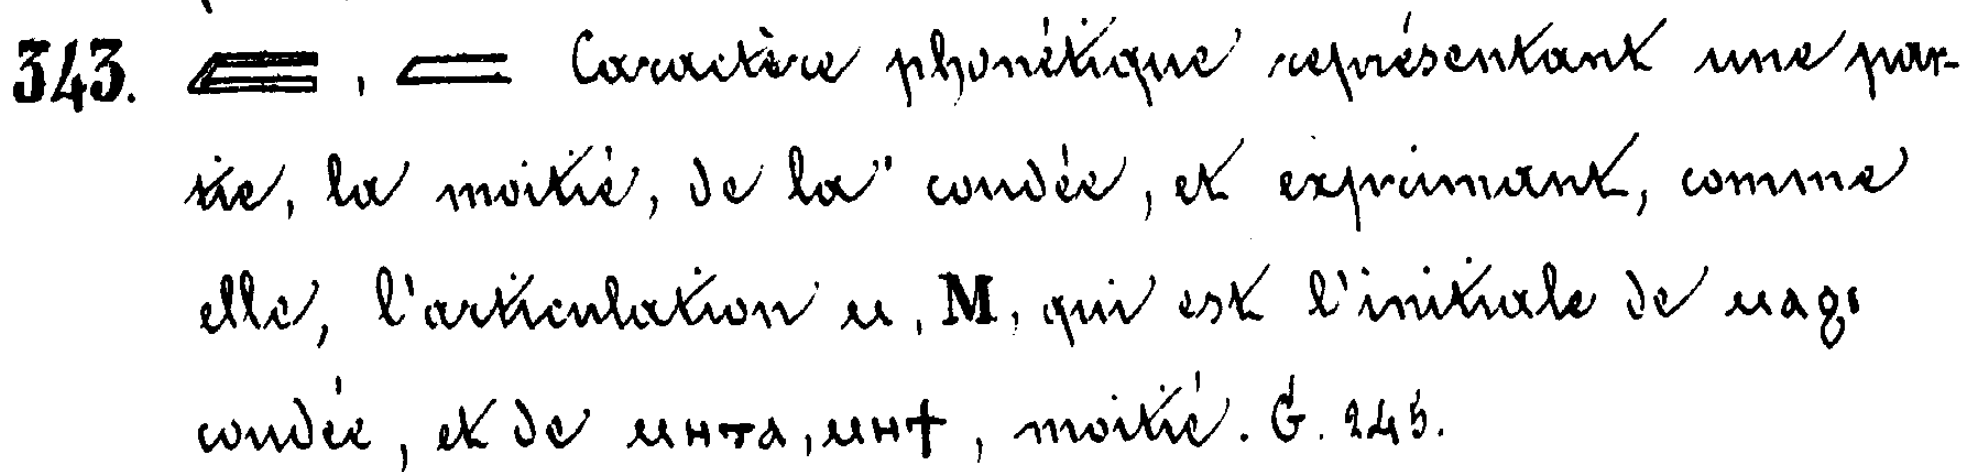 343. 𓐝, 𓐛 Caractère phonétique représentant une par-
tie, la moitié, de la coudée, et exprimant, comme
elle, l'articulation ⲙ, M, qui est l'initiale de ⲙⲁϩⲓ
coudée, et de ⲙⲏⲧⲁ, ⲙⲏϯ, moitié. G. 245.